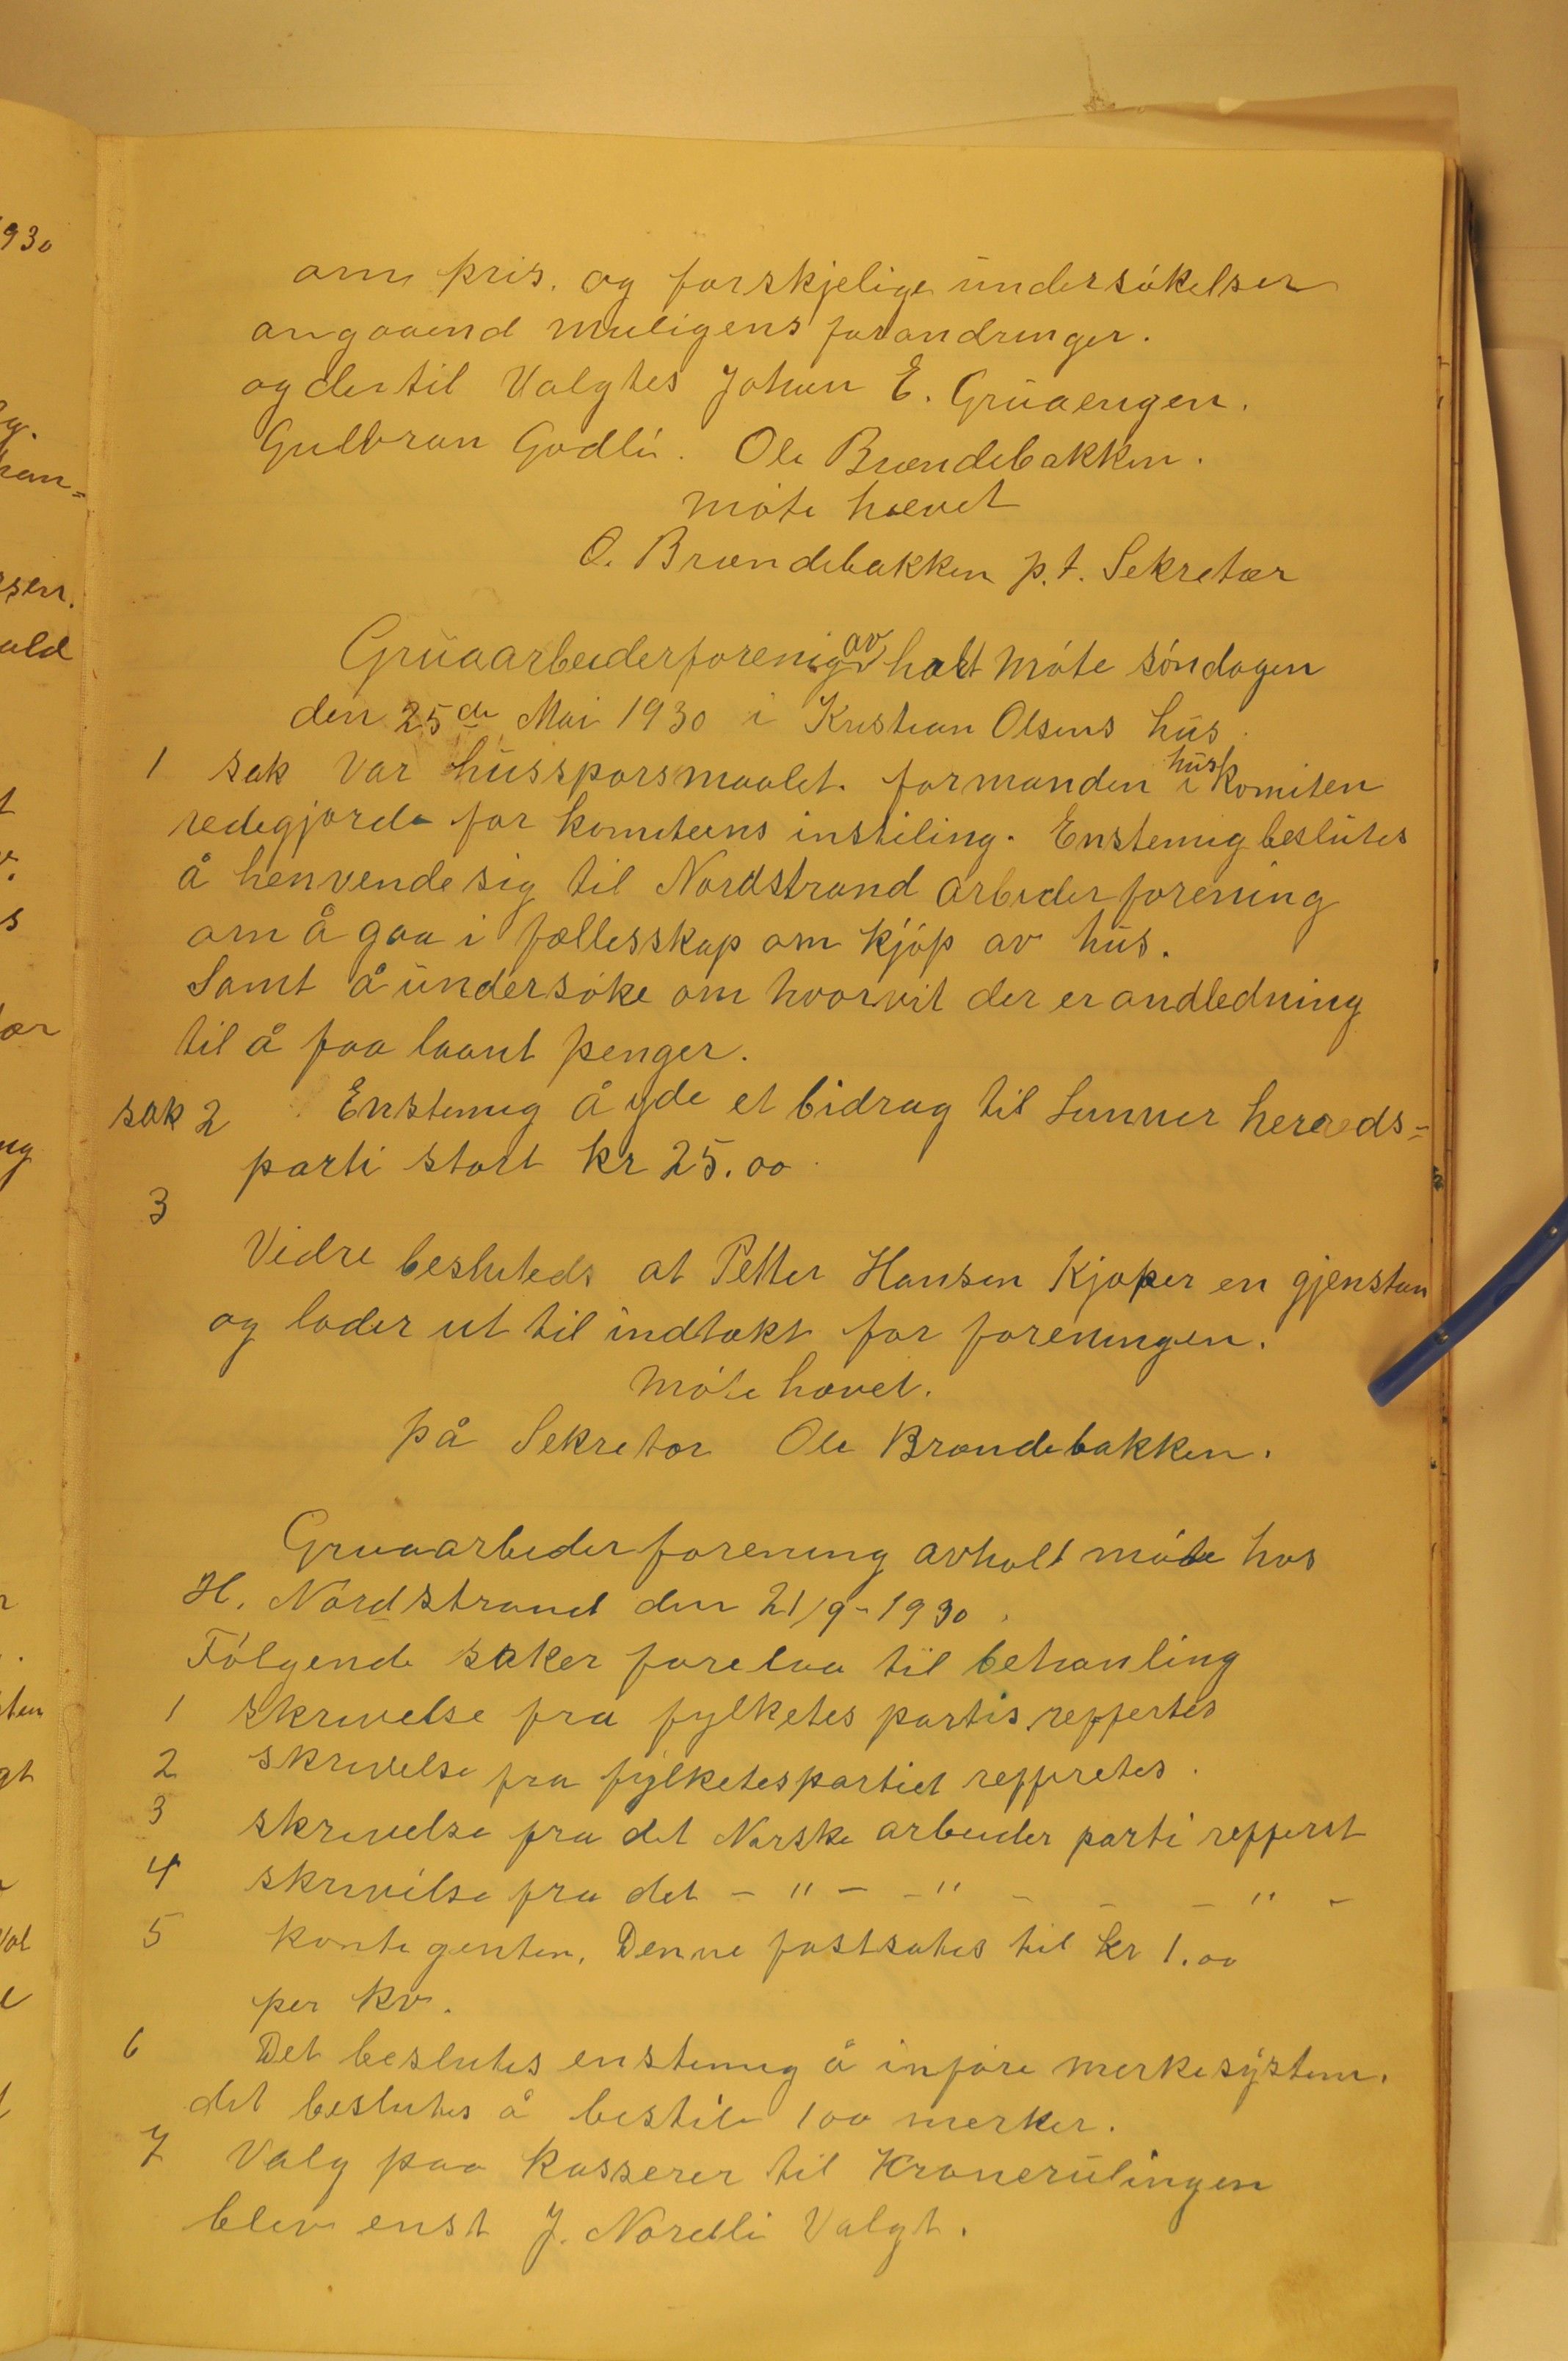 om pris. og forskjelige undersøkelser
angaaend muligens forandringer.
og dertil Valgtes Johan E. Gruaengen.
Gulbran Godli. Ole Brændebakken.
møte hævet
O. Brændebakken p.t. Sekretær
Gruaarbeiderforenig av holt Møte søndagen
den 25de Mai 1930 i Kristian Olsens hus.
1 sak Var husspørsmaalet. formanden i hus Komiten
redegjorde for komiteens instiling. Enstemig beslutes
å henvende sig til Nordstrand arbeider forening
om å gaa i fællesskap om kjøp av hus.
Samt å undersøke om hvorvit der er andledning
til å faa laant penger.
sak 2 Enstemig å yde et bidrag til Lunner herreds-
parti stort kr 25.00
3
Vidre besluteds at Petter Hansen Kjøper en gjenstan
og loder ut til indtækt for foreningen.
Møte hævet.
på Sekretær Ole Brændebakken.
Gruaarbeiderforening avholt møte hos
H. Nordstrand den 21/9-1930.
Følgende saker forelaa til behanling
1 skrivelse fra fylketes partis reffertes
2 skrivelse fra fylketespartiet reffretes.
3 skrivelse fra det Norske arbeider parti refferst
4 skrivilse fra det - " - - " - - - " -
5 kontigenten. Denne fastsates til kr 1.00
per kv.
6 Det beslutes enstemig å inføre merkesystem.
det beslutes å bestile 100 merker.
7 Valg paa kasserer til Kronerulingen
blev enst J. Nordli Valgt.